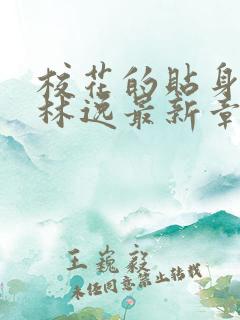 校花的贴身
林逸最新章
王巍毅
未经同意禁止转载